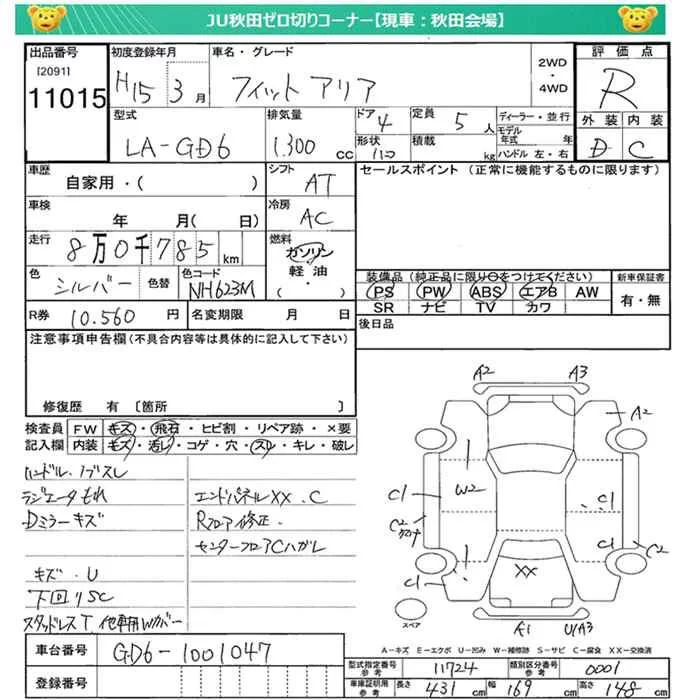 JU秋田ゼロ切りコーナー【現車：秋田会場】
出品番号
[2091]
11015
初度登録年月
H15 3月
車名・グレード
フィット アリア
2WD
・
4WD
評価点
R
外装 内装
D C
型式
LA-GD6
排気量
1.300 cc
ドア
4
形状
ハコ
定員
5人
積載
kg
ディーラー・並行
モデル年式 年
ハンドル 左・右
車歴
自家用・( )
シフト
AT
車検
年 月( 日)
冷房
AC
走行
8万0千785km
燃料
ガソリン
軽油
( )
色
シルバー
色替
色コード
NH623M
R券 10.560円
名変期限 月 日
セールスポイント (正常に機能するものに限ります)
装備品(純正品に限り○をつけてください)
PS PW ABS エアB AW
SR ナビ TV カワ
新車保証書
有・無
後日品
注意事項申告欄(不具合内容等は具体的に記入して下さい)
修復歴 有 〔箇所 〕
検査員記入欄
FW キズ・飛石・ヒビ割・リペア跡・×要
内装 キズ・汚レ・コゲ・穴・スレ・キレ・破レ
ハンドル・ノブスレ
ラジエータもれ
Dミラーキズ
キズ・U
下回りSC
スタッドレスT 他車用Wカバー
エンドパネルXX・C
Rフロア修正・
センターフロアCハガレ
A2 A3
A2
W2
C1
C1
C2
C1
C2
C1
XX
スペア
A1 U1A3
A-キズ E-エクボ U-凹み W-補修跡 S-サビ C-腐食 XX-交換済
車台番号 GD6-1001047
登録番号
型式指定番号 参考 11724
類別区分番号 参考 0001
車庫証明用 参考 長さ 431cm 幅 169cm 高さ 148cm